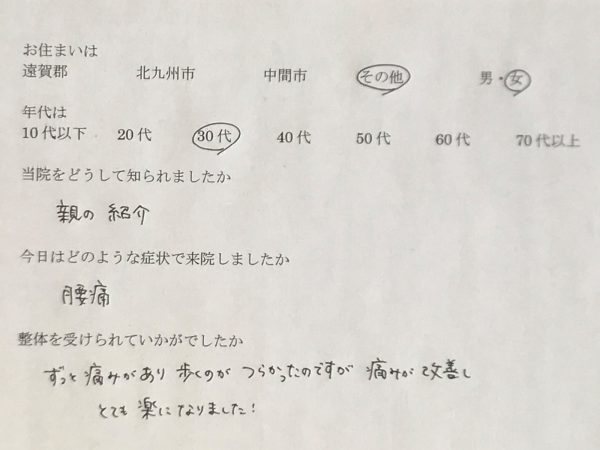 お住まいは
遠賀郡 北九州市 中間市 その他 男・女
年代は
10代以下 20代 30代 40代 50代 60代 70代以上
当院をどうして知られましたか
親の 紹介
今日はどのような症状で来院しましたか
腰痛
整体を受けられていかがでしたか
ずっと 痛みがあり 歩くのが つらかったのですが 痛みが 改善し
とても 楽になりました!